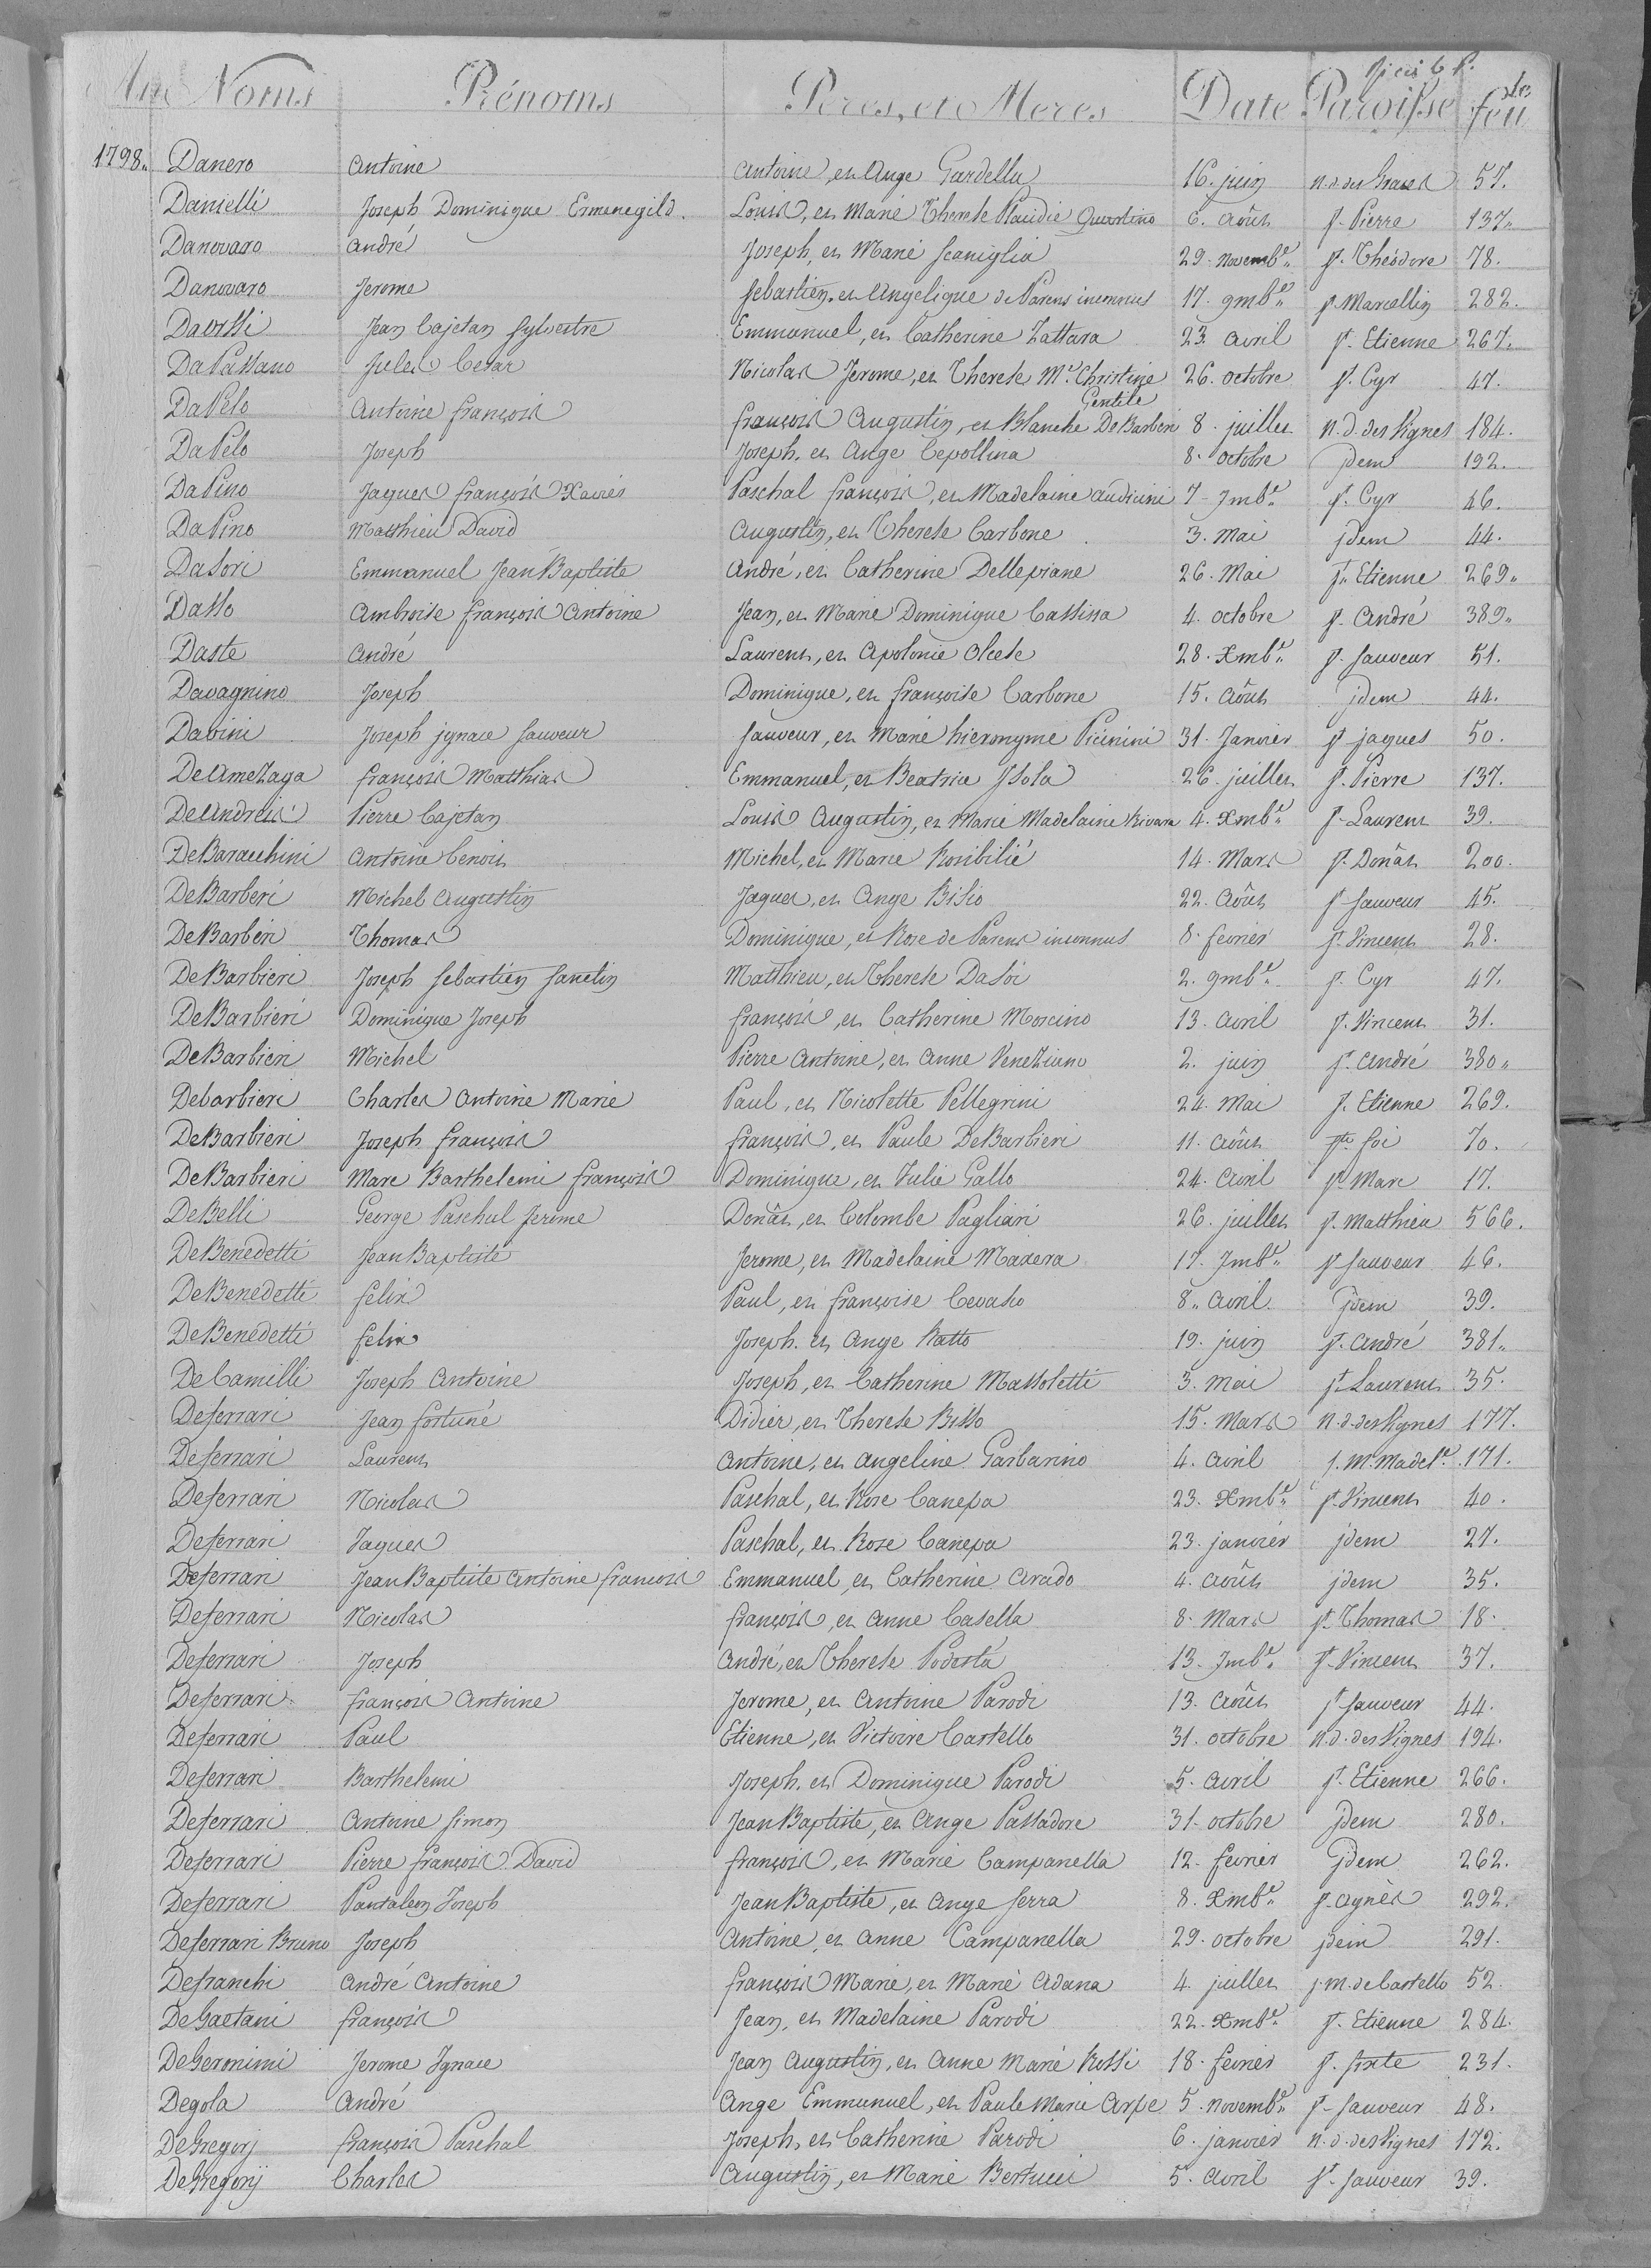 An Noms Prénoms Peres, et Meres Date Paroisse feu.ts
1798.. Danero Antoine Antoine, et Ange Gardella 16. juin n.d. des Graces 57.
Danielli Joseph Dominique Ermenegild. Louis, et Marie Therese Claudie Questino 6. Août s.t Pierre 137..
Danovaro André Joseph, et Marie Scaniglia 29. novemb.e.. s.t Théodore 78.
Danovaro Jerome Sebastien, et Angelique de Parens inconnus 17. 9mb.e.. s.t Marcellin 282.
Daorssi Jean Cajetan Sylvestre Emmanuel, et Catherine Zattara 23. Avril s.t Etienne 267.
DaPassano Jules Cesar Nicolas Jerome, et Therese M.e Christine Gentile 26. octobre s.t Cyr 47.
DaPelo Antoine françois françois Augustin, et Blanche DeBarberi 8. juillet n.d. des Vignes 184.
DaPelo Joseph Joseph, et Ange Cepollina 8. octobre jdem 192.
DaPino Jaques françois Xavier Paschal françois, et Madelaine Audicini 7. 7mb.e.. s.t Cyr 46.
DaPino Matthieu David Augustin, et Therese Carbone 3. Mai jdem 44.
DaSori Emmanuel Jean Baptiste André, et Catherine Dellepiane 26. Mai s.t Etienne 269..
Dasso Ambroise françois Antoine Jean, et Marie Dominique Cassissa 4. octobre s.t André 389..
Daste André Laurent, et Apolonie Olcese 28. Xmb.e.. s.t Sauveur 51.
Davagnino Joseph Dominique, et françoise Carbone 15. Août jdem 44.
Davini Joseph jgnace Sauveur Sauveur, et Marie hieronyme Picinini 31. Janvier s.t jaques 50.
DeAmezaga françois Matthias Emmanuel, et Beatrice Isola 26. juillet s.t Pierre 137.
DeAndreis Pierre Cajetan Louis Augustin, et Marie Madelaine Rivara 4. Xmb.e.. s.t Laurent 39.
DeBaracchini Antoine Benoit Michel, et Marie Rosibilié 14. Mars s.t Donât 200.
DeBarberi Michel Augustin Jaques, et Ange Bisio 22. Août s.t Sauveur 45.
DeBarberi Thomas Dominique, et Rose de Parens inconnus 8. fevrier s.t Vincent 28.
DeBarbieri Joseph Sebastien Sanctin Matthieu, et Therese DaSoi 2. 9mb.e.. s.t Cyr 47.
DeBarbieri Dominique Joseph françois, et Catherine Morcino 13. Avril s.t Vincent 31.
DeBarbieri Michel Pierre Antoine, et Anne Veneziano 2. juin s.t André 380..
Debarbieri Charles Antoine Marie Paul, et Nicolette Pellegrini 24. Mai s.t Etienne 269.
DeBarbieri Joseph françois françois, et Paule DeBarbieri 11. Août s.te foi 70.
DeBarbieri Marc Barthelemi françois Dominique, et Julie Gallo 24. Avril s.t Marc 17.
DeBelli George Paschal Jerome Donât, et Colombe Pagliari 26. juillet s.t Matthieu 566.
DeBenedetti Jean Baptiste Jerome, et Madelaine Maxera 17. 7mb.e.. s.t Sauveur 46.
DeBenedetti félix Paul, et françoise Cevasco 8.. Avril jdem 39.
DeBenedetti felix Joseph, et Ange Ratto 19. juin s.t André 381..
DeCamilli Joseph Antoine Joseph, et Catherine Massoletti 3. Mai s.t Laurent 35.
Deferrari Jean fortuné Didier, et Therese Bisso 15. Mars n.d. des Vignes 177.
Deferrari Laurent Antoine, et Angeline Garbarino 4. Avril s. M. Madel.e 171.
Deferrari Nicolas Paschal, et Rose Canepa 23. Xmb.e.. s.t Vincent 40.
Deferrari Jaques Paschal, et Rose Canepa 23. janvier jdem 27.
Deferrari Jean Baptiste Antoine francois Emmanuel, et Catherine Arado 4. Août jdem 35.
Deferrari Nicolas françois, et Anne Casella 8. Mars s.t Thomas 18.
Deferrari Joseph André, et Therese Podestà 13. 7mb.e s.t Vincent 37.
Deferrari françois Antoine Jerome, et Antoine Parodi 13. Août s.t Sauveur 44.
Deferrari Paul Etienne, et Victoire Castello 31. octobre n.d. des Vignes 194.
Deferrari Barthelemi Joseph, et Dominique Parodi 5. Avril s.t Etienne 266.
Deferrari Antoine Simon Jean Baptiste, et Ange Passadore 31. octobre jdem 280.
Deferrari Pierre françois David françois, et Marie Campanella 12. fevrier jdem 262.
Deferrari Pantaleon Joseph Jean Baptiste, et Ange Serra 8. Xmb.e.. s.t Agnès 292.
Deferrari Bruno Joseph Antoine, et Anne Campanella 29. octobre jdem 291.
Defranchi André Antoine françois Marie, et Marie Adana 4. juillet s.M. de Castello 52.
DeGaetani françois Jean, et Madelaine Parodi 22. Xmb.e.. s.t Etienne 284.
DeGeronimi Jerome Ignace Jean Augustin, et Anne Marie Rossi 18. fevrier s.t Sixte 231.
Degola André Ange Emmanuel, et Paule Marie Arpe 5. novemb.e.. s.t Sauveur 48.
DeGregorj françois Paschal Joseph, et Catherine Parodi 6. janvier n.d. des Vignes 172.
DeGregorij Charles Augustin, et Marie Bertucci 5. Avril s.t Sauveur 39.